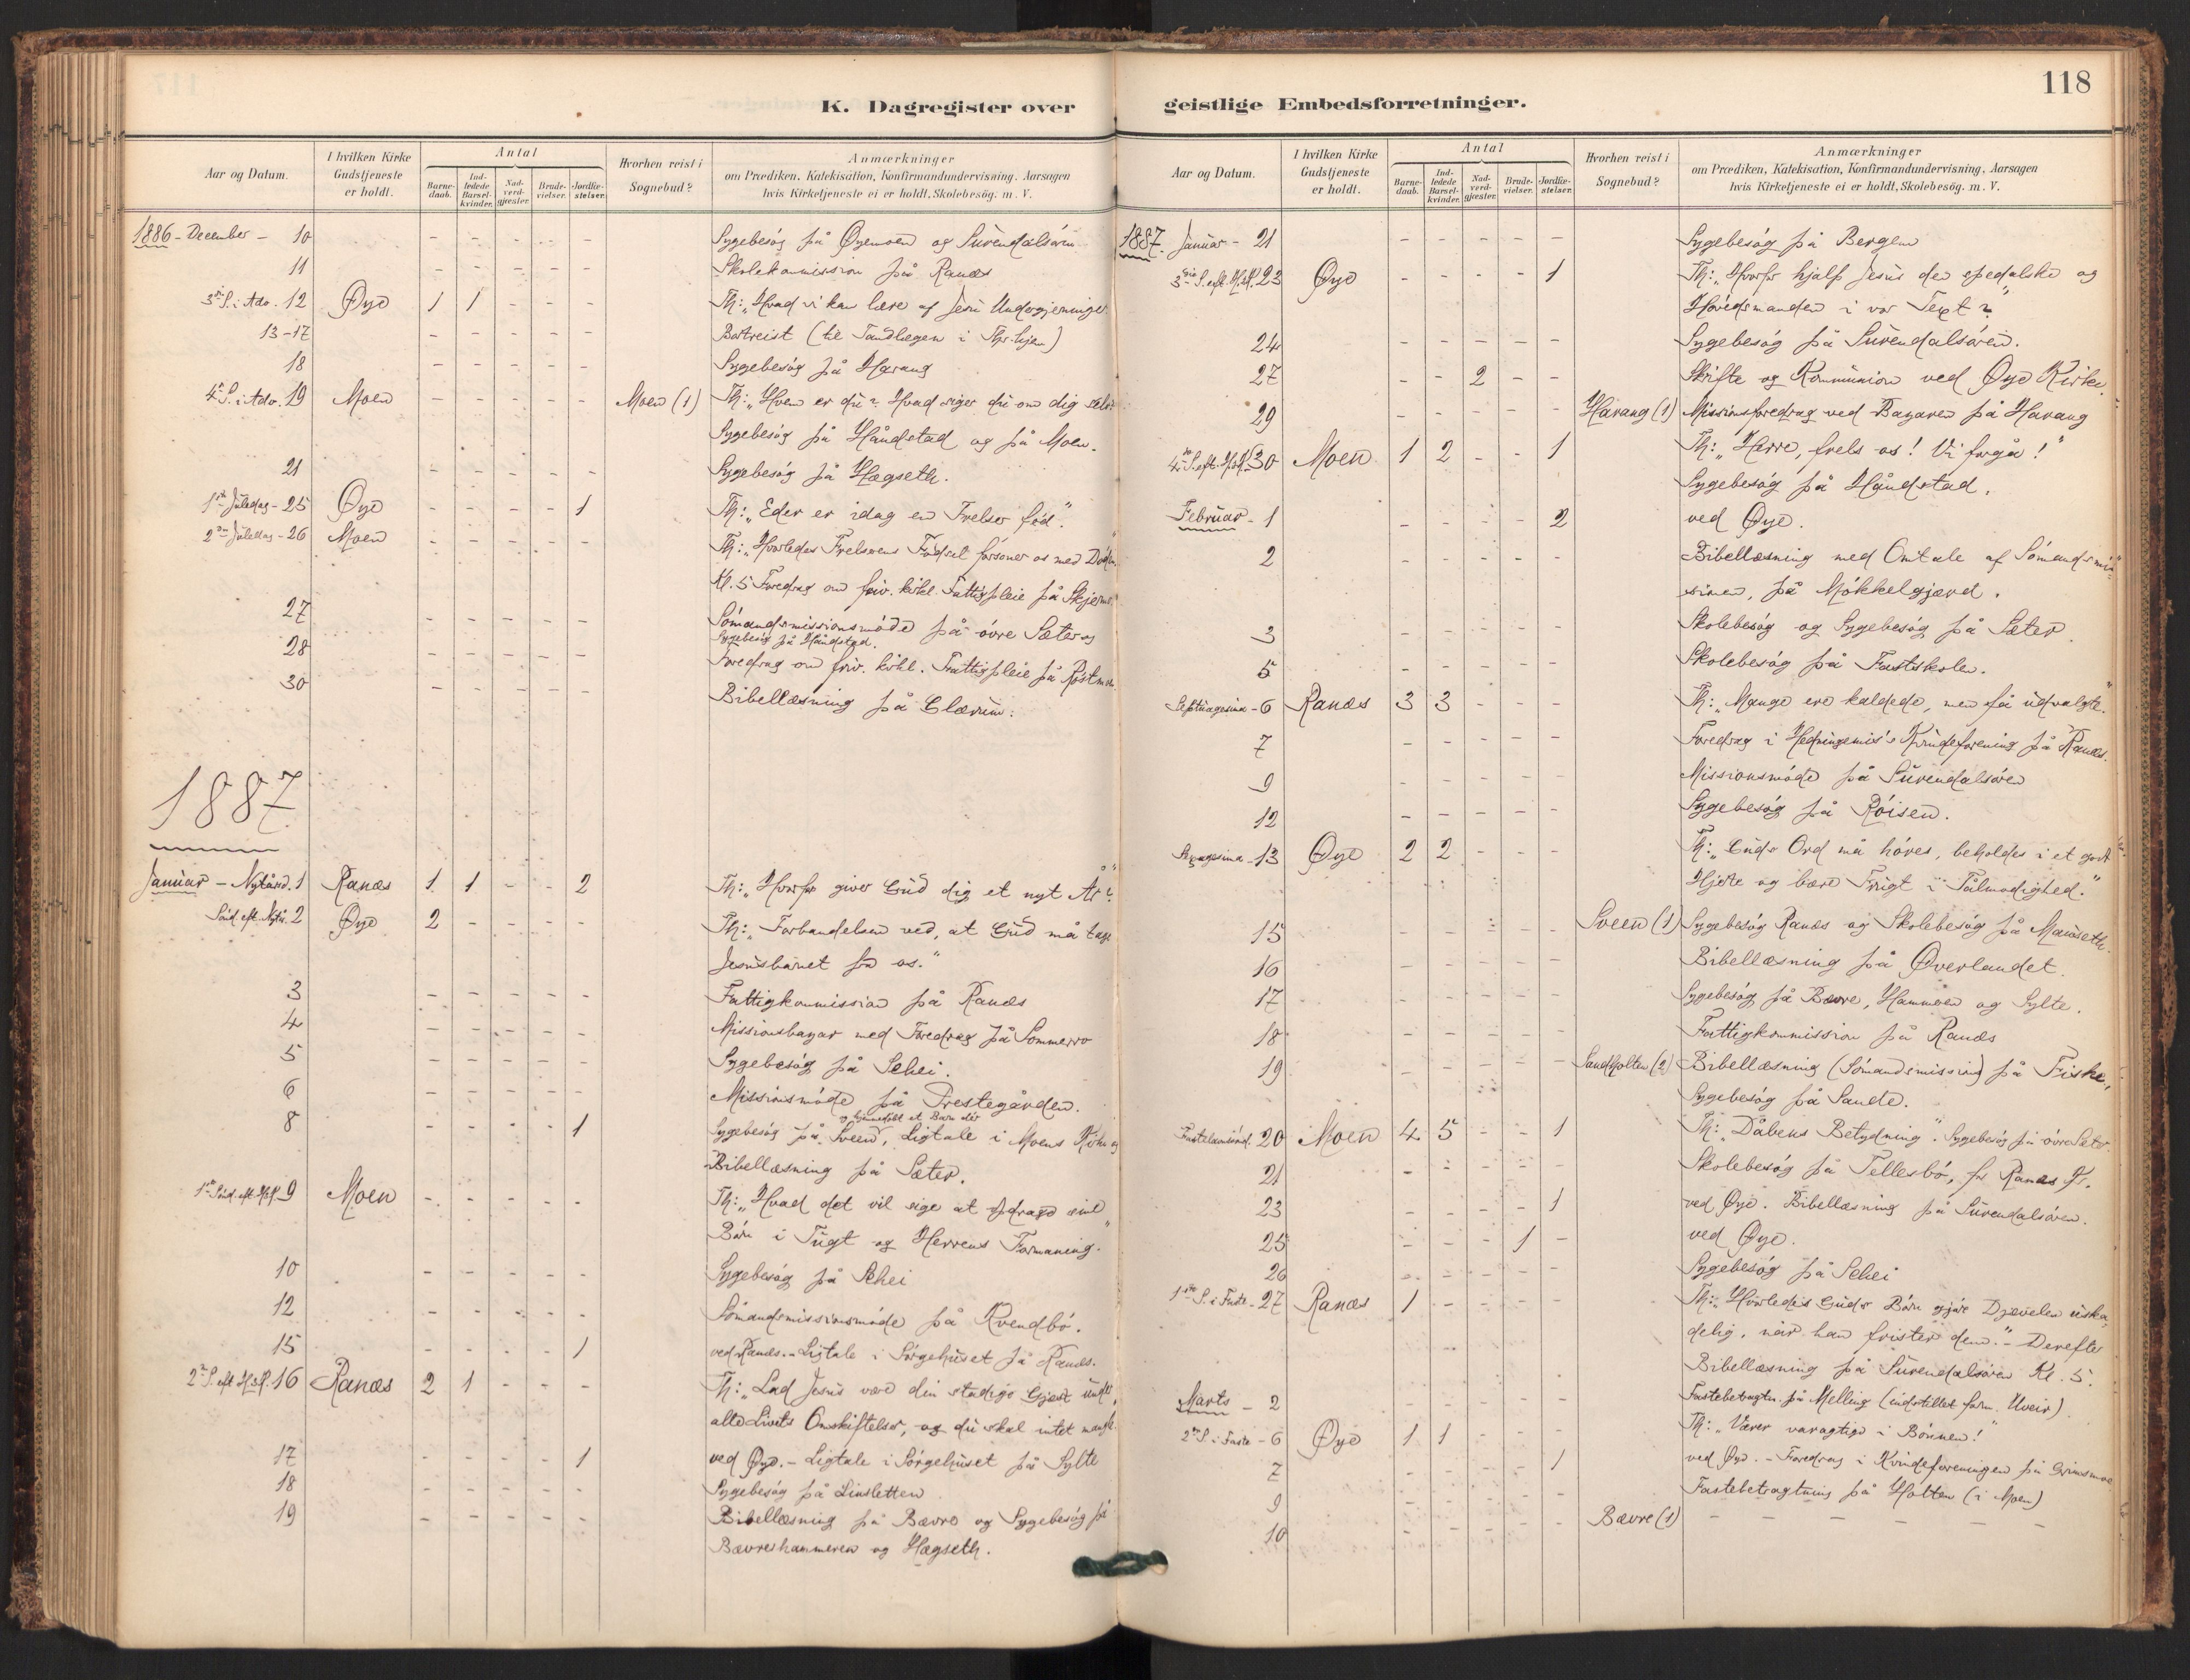 118
K. Dagregister over geistlige Embedsforretninger.
Aar og Datum.
I hvilken Kirke Gudstjeneste er holdt.
Antal
Barne-daab.
Ind-ledede Barsel-kvinder.
Nad-verd-gjæster.
Brude-vielser.
Jordfæ-stelser.
Hvorhen reist i Sognebud?
Anmærkninger
om Prædiken, Katekisation, Konfirmandundervisning, Aarsagen
hvis Kirketjeneste ei er holdt, Skolebesög. m. V.
1886 - December - 10 - - - - - Sygebesøg på Øyemoen og Surendalsøren
11 - - - - - Skolekommission på Ranæs
3die S. i Adv. 12 Øye 1 1 - - - Th: „Hvad vi kan lære af Jesu Undergjerninger.
13-17 - - - - - Bortreist (til Tandlægen i Thr.hjem)
18 - - - - - Sygebesøg på Harang
4de S. i Adv. 19 Moen - - - - - Moen (1) Th: „Hven er du? Hvad siger du om dig selv?
Sygebesøg på Håndstad og på Moen.
21 - - - - - Sygebesøg på Hægseth.
1ste Juledag - 25 Øye - - - - 1 Th: „Eder er idag en Frelser fød".
2den Juledag - 26 Moen - - - - - Th: „Hvorledes Frelserens Fødsel forsoner os med Døden.
Kl. 5 Foredrag om friv. kirkl. Fattigpleie på
27 - - - - - Sømandsmissionsmøde på øvre Sæter og
Sygebesøg på Håndstad.
28 - - - - - Foredrag om friv. kirkl. Fattigpleie på
30 - - - - - Bibellæsning på Glærum.
1887
Januar - Nytårsd. 1 Ranæs 1 1 - - 2 Th: „Hvorfor giver Gud dig et nyt År?"
Sønd. eft. Nytår. 2 Øye 2 - - - - Th: „Forbandelsen ved, at Gud må tage
Jesusbarnet fra os."
3 - - - - - Fattigkommission på Ranæs
4 - - - - - Missionsbazar med Foredrag på Sommerro
5 - - - - - Sygebesøg på Schei.
6 - - - - - Missionsmøde på Prestegården.
og hjemmedøbt et Barn der
8 - - - - 1 Sygebesøg på Sveen, Ligtale i Moens Kirke og
Bibellæsning på Sæter.
1ste Sønd. eft. H3K. 9 Moen - - - - - Th: „Hvad det vil sige at opdrage sine
Børn i Tugt og Herrens Formaning."
10 - - - - - Sygebesøg på Schei
12 - - - - - Sømandsmissionsmøde på Kvendbø.
15 - - - - 1 ved Ranæs. - Ligtale i Sørgehuset på Ranæs.
2den S. eft. H3K. 16 Ranæs 2 1 - - - Th: „Lad Jesus være din stadige Gjest under
alle Livets Omskiftelser, og du skal intet mangle.
17 - - - - 1 ved Øye. - Ligtale i Sørgehuset på Sylte
18 - - - - - Sygebesøg på Linsletten
19 - - - - - Bibellæsning på Bævre og Sygebesøg på
Bævreshammeren og Hægseth.
K. Dagregister over geistlige Embedsforretninger.
Aar og Datum.
I hvilken Kirke Gudstjeneste er holdt.
Antal
Barne-daab.
Ind-ledede Barsel-kvinder.
Nad-verd-gjæster.
Brude-vielser.
Jordfæ-stelser.
Hvorhen reist i Sognebud?
Anmærkninger
om Prædiken, Katekisation, Konfirmandundervisning, Aarsagen
hvis Kirketjeneste ei er holdt, Skolebesög. m. V.
1887. Januar - 21 - - - - - Sygebesøg på Bergem
3die S. eft. H3K. 23 Øye - - - - 1 Th: „Hvorfor hjalp Jesus den spedalske og
Høvedsmanden i vor Text?"
24 - - - - - Sygebesøg på Surendalsøren.
27 - - 2 - - Skrifte og Kommunion ved Øye Kirke.
29 - - - - - Harang (1) Missionsforedrag ved Bazaren på Harang
4de S. eft. H3K. 30 Moen 1 2 - - 1 Th: „Herre, frels os! Vi forgå!"
Sygebesøg på Håndstad.
Februar - 1 - - - - 2 ved Øye.
2 - - - - - Bibellæsning med Omtale af Sømandsmis-
sionen, på Møkkelgjærd.
3 - - - - - Skolebesøg og Sygebesøg på Sæter.
5 - - - - - Skolebesøg på Fastskolen.
Septuagesima - 6 Ranæs 3 3 - - - Th: „Mange ere kaldede, men få udvalgte."
7 - - - - - Foredrag i Hedningemis's Kvindeforening på Ranæs.
9 - - - - - Missionsmøde på Surendalsøren
12 - - - - - Sygebesøg på Røisen.
Sexagesima - 13 Øye 2 2 - - - Th: „Guds Ord må høres, beholdes i et godt
Hjerte og bære Frugt i Tålmodighed."
15 - - - - - Sveen (1) Sygebesøg Ranæs og Skolebesøg på Mauseth.
16 - - - - - Bibellæsning på Øverlandet.
17 - - - - - Sygebesøg på Bævre, Hammeren og Sylte.
18 - - - - - Fattigkommission på Ranæs
19 - - - - - Sandholten (2) Bibellæsning (Sømandsmission) på Fiske,
Sygebesøg på Sande.
Fastelavnssønd. 20 Moen 4 5 - - 1 Th: „Dåbens Betydning". Sygebesøg på øvre Sæter.
21 - - - - - Skolebesøg på Tellesbø, for Ranæs Kr.
23 - - - - 1 ved Øye. Bibellæsning på Surendalsøren.
25 - - - 1 - ved Øye.
26 - - - - - Sygebesøg på Schei
1ste S. i Faste - 27 Ranæs 1 - - - - Th: „Hvorledes Guds Børn gjøre Djævelen uska-
delig, når han frister dem." - Derefter
Bibellæsning på Surendalsøren Kl. 5.
Marts - 2 - - - - - Fastebetragtn. på Melling (indstillet form. Uveir)
2den S. i Faste - 6 Øye 1 1 - - - Th: „Værer varagtige i Bønnen!"
7 - - - - 1 ved Øye. - Foredrag i Kvindeforeningen på Grimsmoe
9 - - - - - Fastebetragtning på Holten (i Moen)
10 - - - - - Bævre (1) - - - - -